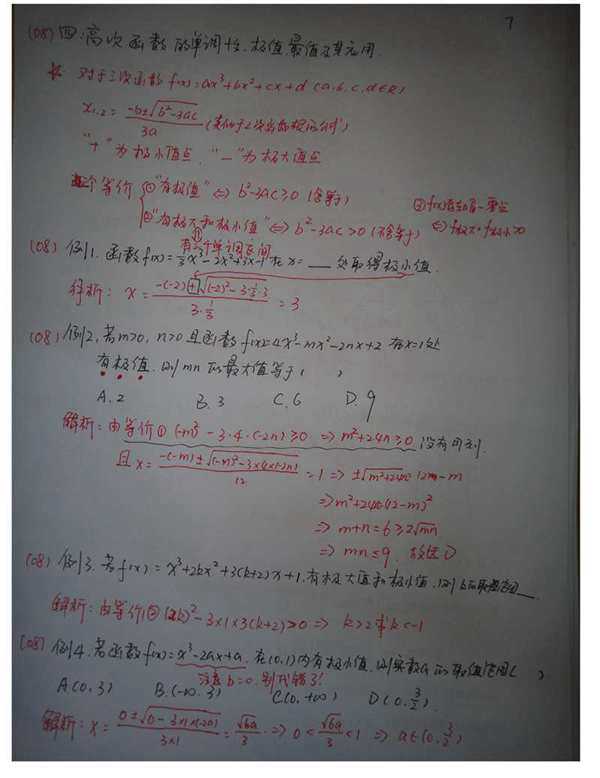 7
(08) 四.高次函数的单调性.极值.最值及其应用
☆ 对于三次函数 f(x)=ax³+bx²+cx+d (a.b.c.d∈R)
x₁,₂ = (-b±√(b²-3ac))/3a (类似于2次函数求根公式)
"+"为极小值点, "-"为极大值点
个等价 ①"有极值" ⇔ b²-3ac≥0 (含等于)
②"有极大和极小值" ⇔ b²-3ac>0 (不含等于)
有三个单调区间
(08) 例1. 函数f(x)=⅓x³-2x²+3x-1在x=___处取得极小值.
解析: x = (-(-2)+√((-2)²-3·⅓·3))/(3·⅓) = 3
(08) 例2.若m>0, n>0且函数f(x)=4x³-mx²-2nx+2 在x=1处
有极值.则mn的最大值等于( )
A.2 B.3 C.6 D.9
解析: 由等价① (-m)²-3·4·(-2n)≥0 ⇒ m²+24n≥0 没有用到.
且 x = (-(-m)±√((-m)²-3×4×(-2n)))/12 = 1 ⇒ ±√(m²+24n)=12-m
⇒m²+24n=(12-m)²
⇒ m+n=6≥2√mn
⇒ mn≤9. 故选D
(08) 例3. 若f(x)=x³+2kx²+3(k+2)x+1.有极大值和极小值.则k的取值范围___.
解析: 由等价② (2k)²-3×1×3(k+2)>0 ⇒ k>2或k<-1
(08) 例4.若函数f(x)=x³-2ax+a.在(0,1)内有极小值.则实数a的取值范围( )
注意b=0.别代错了!
A(0,3) B.(-∞.3) C(0,+∞) D(0,3/2)
解析: x = (0±√(0-3×1×(-2a)))/(3×1) = √6a/3 ⇒ 0<√6a/3<1 ⇒ a∈(0,3/2)